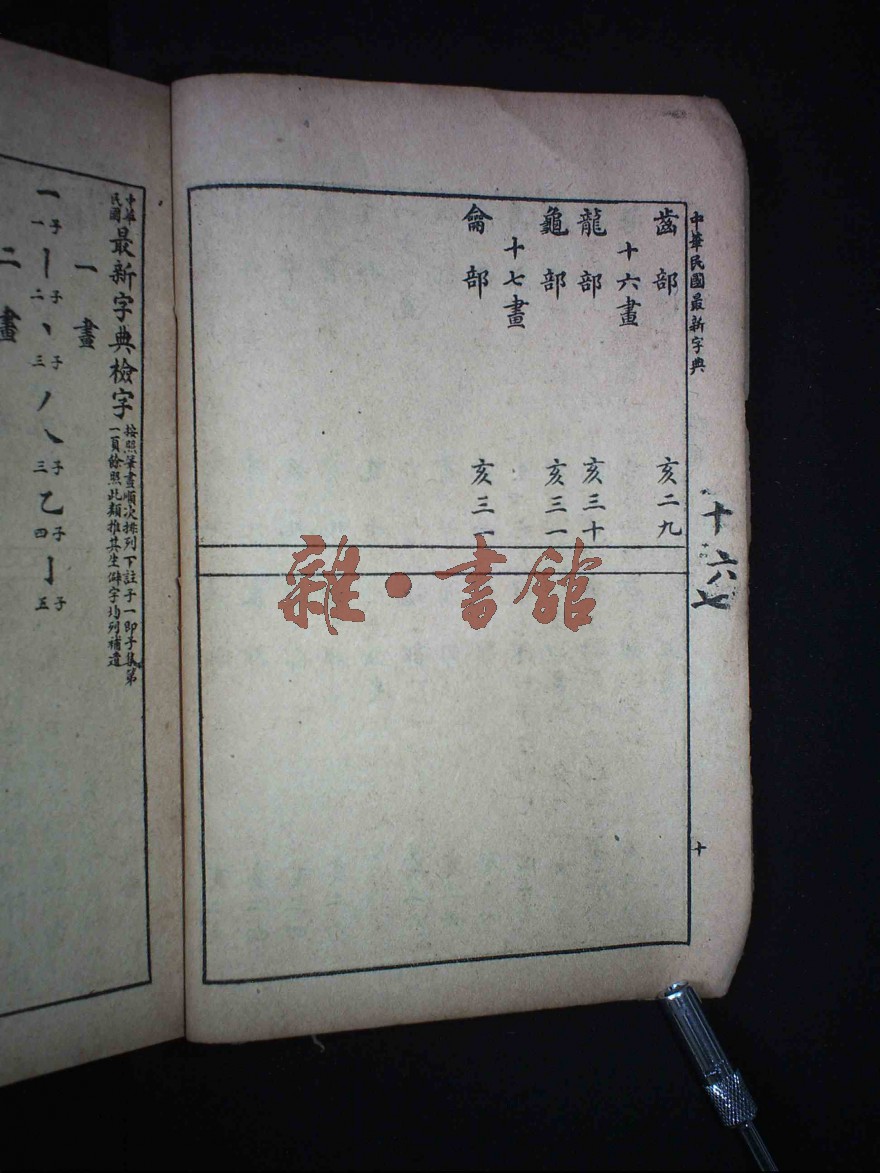 中華民國最新字典
十
十六七
齒部 亥二九
十六畫
龍部 亥三十
龜部 亥三一
十七畫
龠部 亥三一
雜·書館
中華民國最新字典檢字
按照筆畫順次排列下註子一即子集第
一頁餘照此類推其生僻字均列補遺
一畫
一子一 丨子二 丶子三 丿乀子三 乙子四 亅子五
二畫